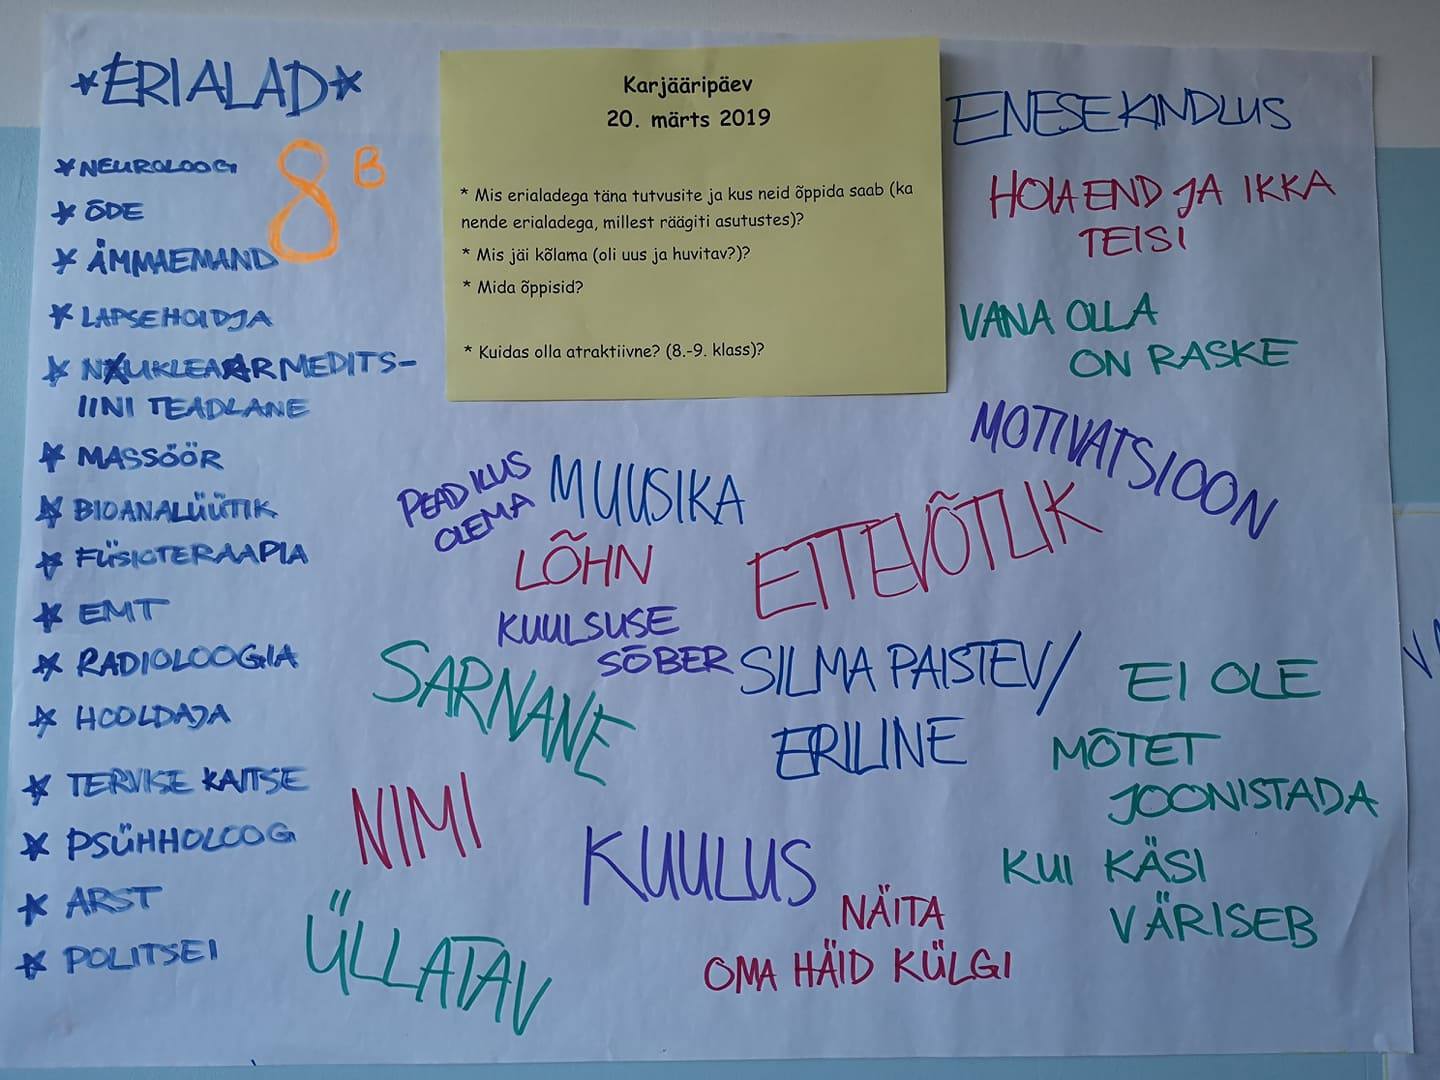 *ERIALAD*
* NEUROLOOG
8 B
* ÕDE
* ÄMMAEMAND
* LAPSEHOIDJA
* NUKLEARRMEDITS-
IINI TEADLANE
* MASSÖÖR
* BIOANALÜÜTIK
* FÜSIOTERAAPIA
* EMT
* RADIOLOOGIA
* HOOLDAJA
* TERVISE KAITSE
* PSÜHHOLOOG
* ARST
* POLITSEI
Karjääripäev
20. märts 2019
* Mis erialadega täna tutvusite ja kus neid õppida saab (ka
nende erialadega, millest räägiti asutustes)?
* Mis jäi kõlama (oli uus ja huvitav?)?
* Mida õppisid?
* Kuidas olla atraktiivne? (8.-9. klass)?
ENESEKINDLUS
HOIA END JA IKKA
TEISI
VANA OLLA
ON RASKE
MOTIVATSIOON
PEAD IKUS
OLEMA
MUUSIKA
LÕHN
ETTEVÕTLIK
KUULSUSE
SÕBER
SARNANE
SILMA PAISTEV/
ERILINE
EI OLE
MÕTET
JOONISTADA
KUI KÄSI
VÄRISEB
NIMI
KUULUS
NÄITA
OMA HÄID KÜLGI
ÜLLATAV